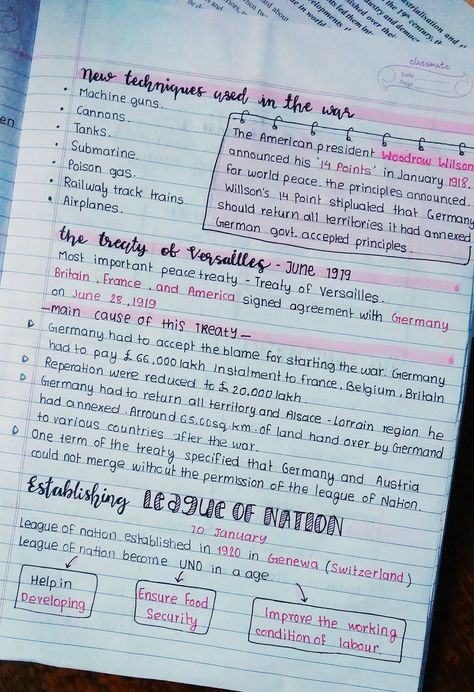 classmate
Date
Page
New techniques used in the war
• Machine guns.
• Cannons.
• Tanks.
• Submarine.
• Poison gas.
• Railway track trains.
• Airplanes.
The American president Woodrow Wilson
announced his '14 Points' in January 1918.
for world peace. the principles announced.
Willson's 14 Point stipluated that Germany
should return all territories it had annexed
German govt. accepted principles.
the treaty of Versailles - JUNE 1919
Most important peace treaty - Treaty of Versailles.
Britain, France, and America signed agreement with Germany
on June 28, 1919
-main cause of this Treaty-
Germany had to accept the blame for starting the war. Germany
had to pay £ 66,000 lakh Instalment to france, Belgium, Britain
Reperation were reduced to £ 20.000 lakh.
Germany had to return all territory and Alsace - Lorrain region he
had annexed. Arround 65.000sq.km. of land hand over by Germand
to various countries after the war.
One term of the treaty specified that Germany and Austria
could not merge without the permission of the league of Nation.
Establishing LEAGUE OF NATION
10 January
League of nation established in 1920 in Genewa (Switzerland)
League of nation become UNO in a age
Help in
Developing
Ensure Food
Security
Improve the working
condition of labour.